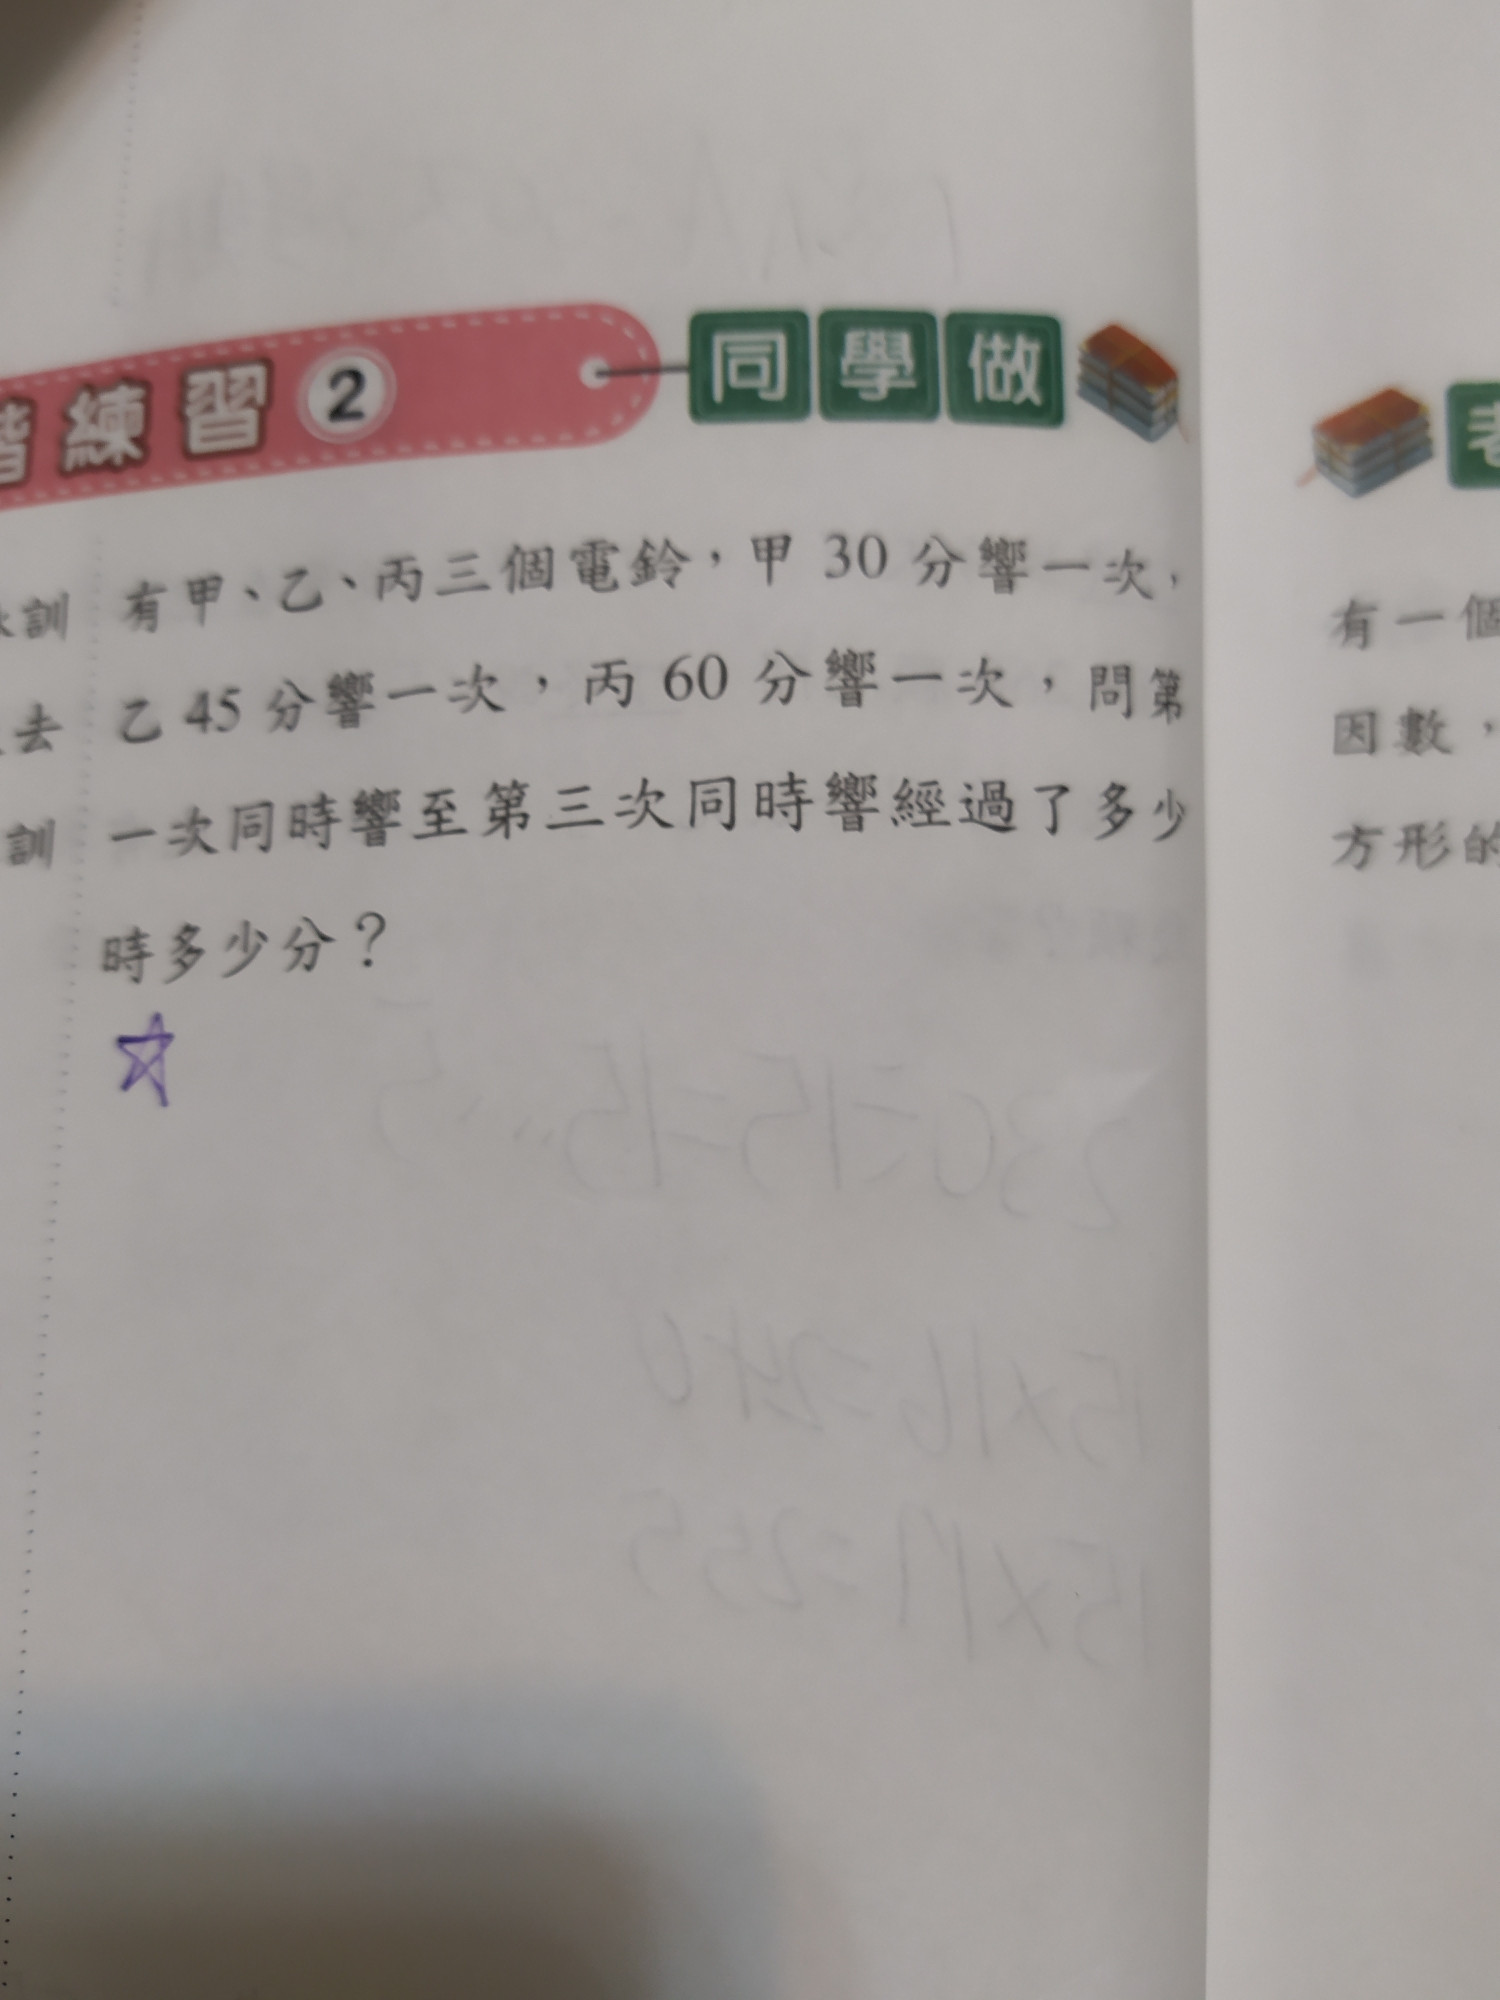 練習 2 同學做
有甲、乙、丙三個電鈴，甲 30 分響一次，
乙 45 分響一次，丙 60 分響一次，問第
一次同時響至第三次同時響經過了多少
時多少分？
訓
去
訓
有一個
因數，
方形的
230÷15=15…5
15×16=240
15×17=255